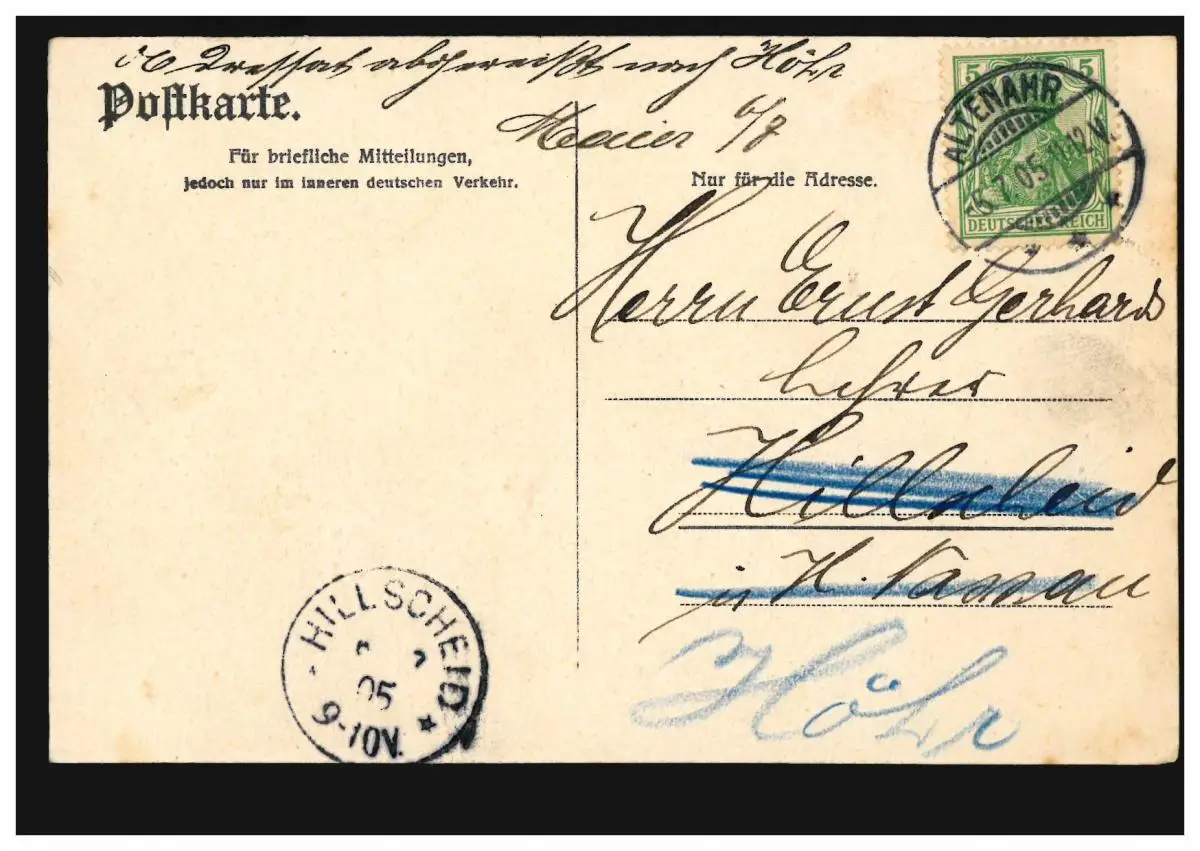 Adressat abgereißt nach Höhr
Maier 6/7
Postkarte.
Für briefliche Mitteilungen,
jedoch nur im inneren deutschen Verkehr.
Nur für die Adresse.
5 5
DEUTSCHES REICH
ALTENAHR
5.7.05. 11-12 V.
Herrn Ernst Gerhards
Lehrer
Hillscheid
H. Nassau
Höhr
HILLSCHEID
05
9-10V.